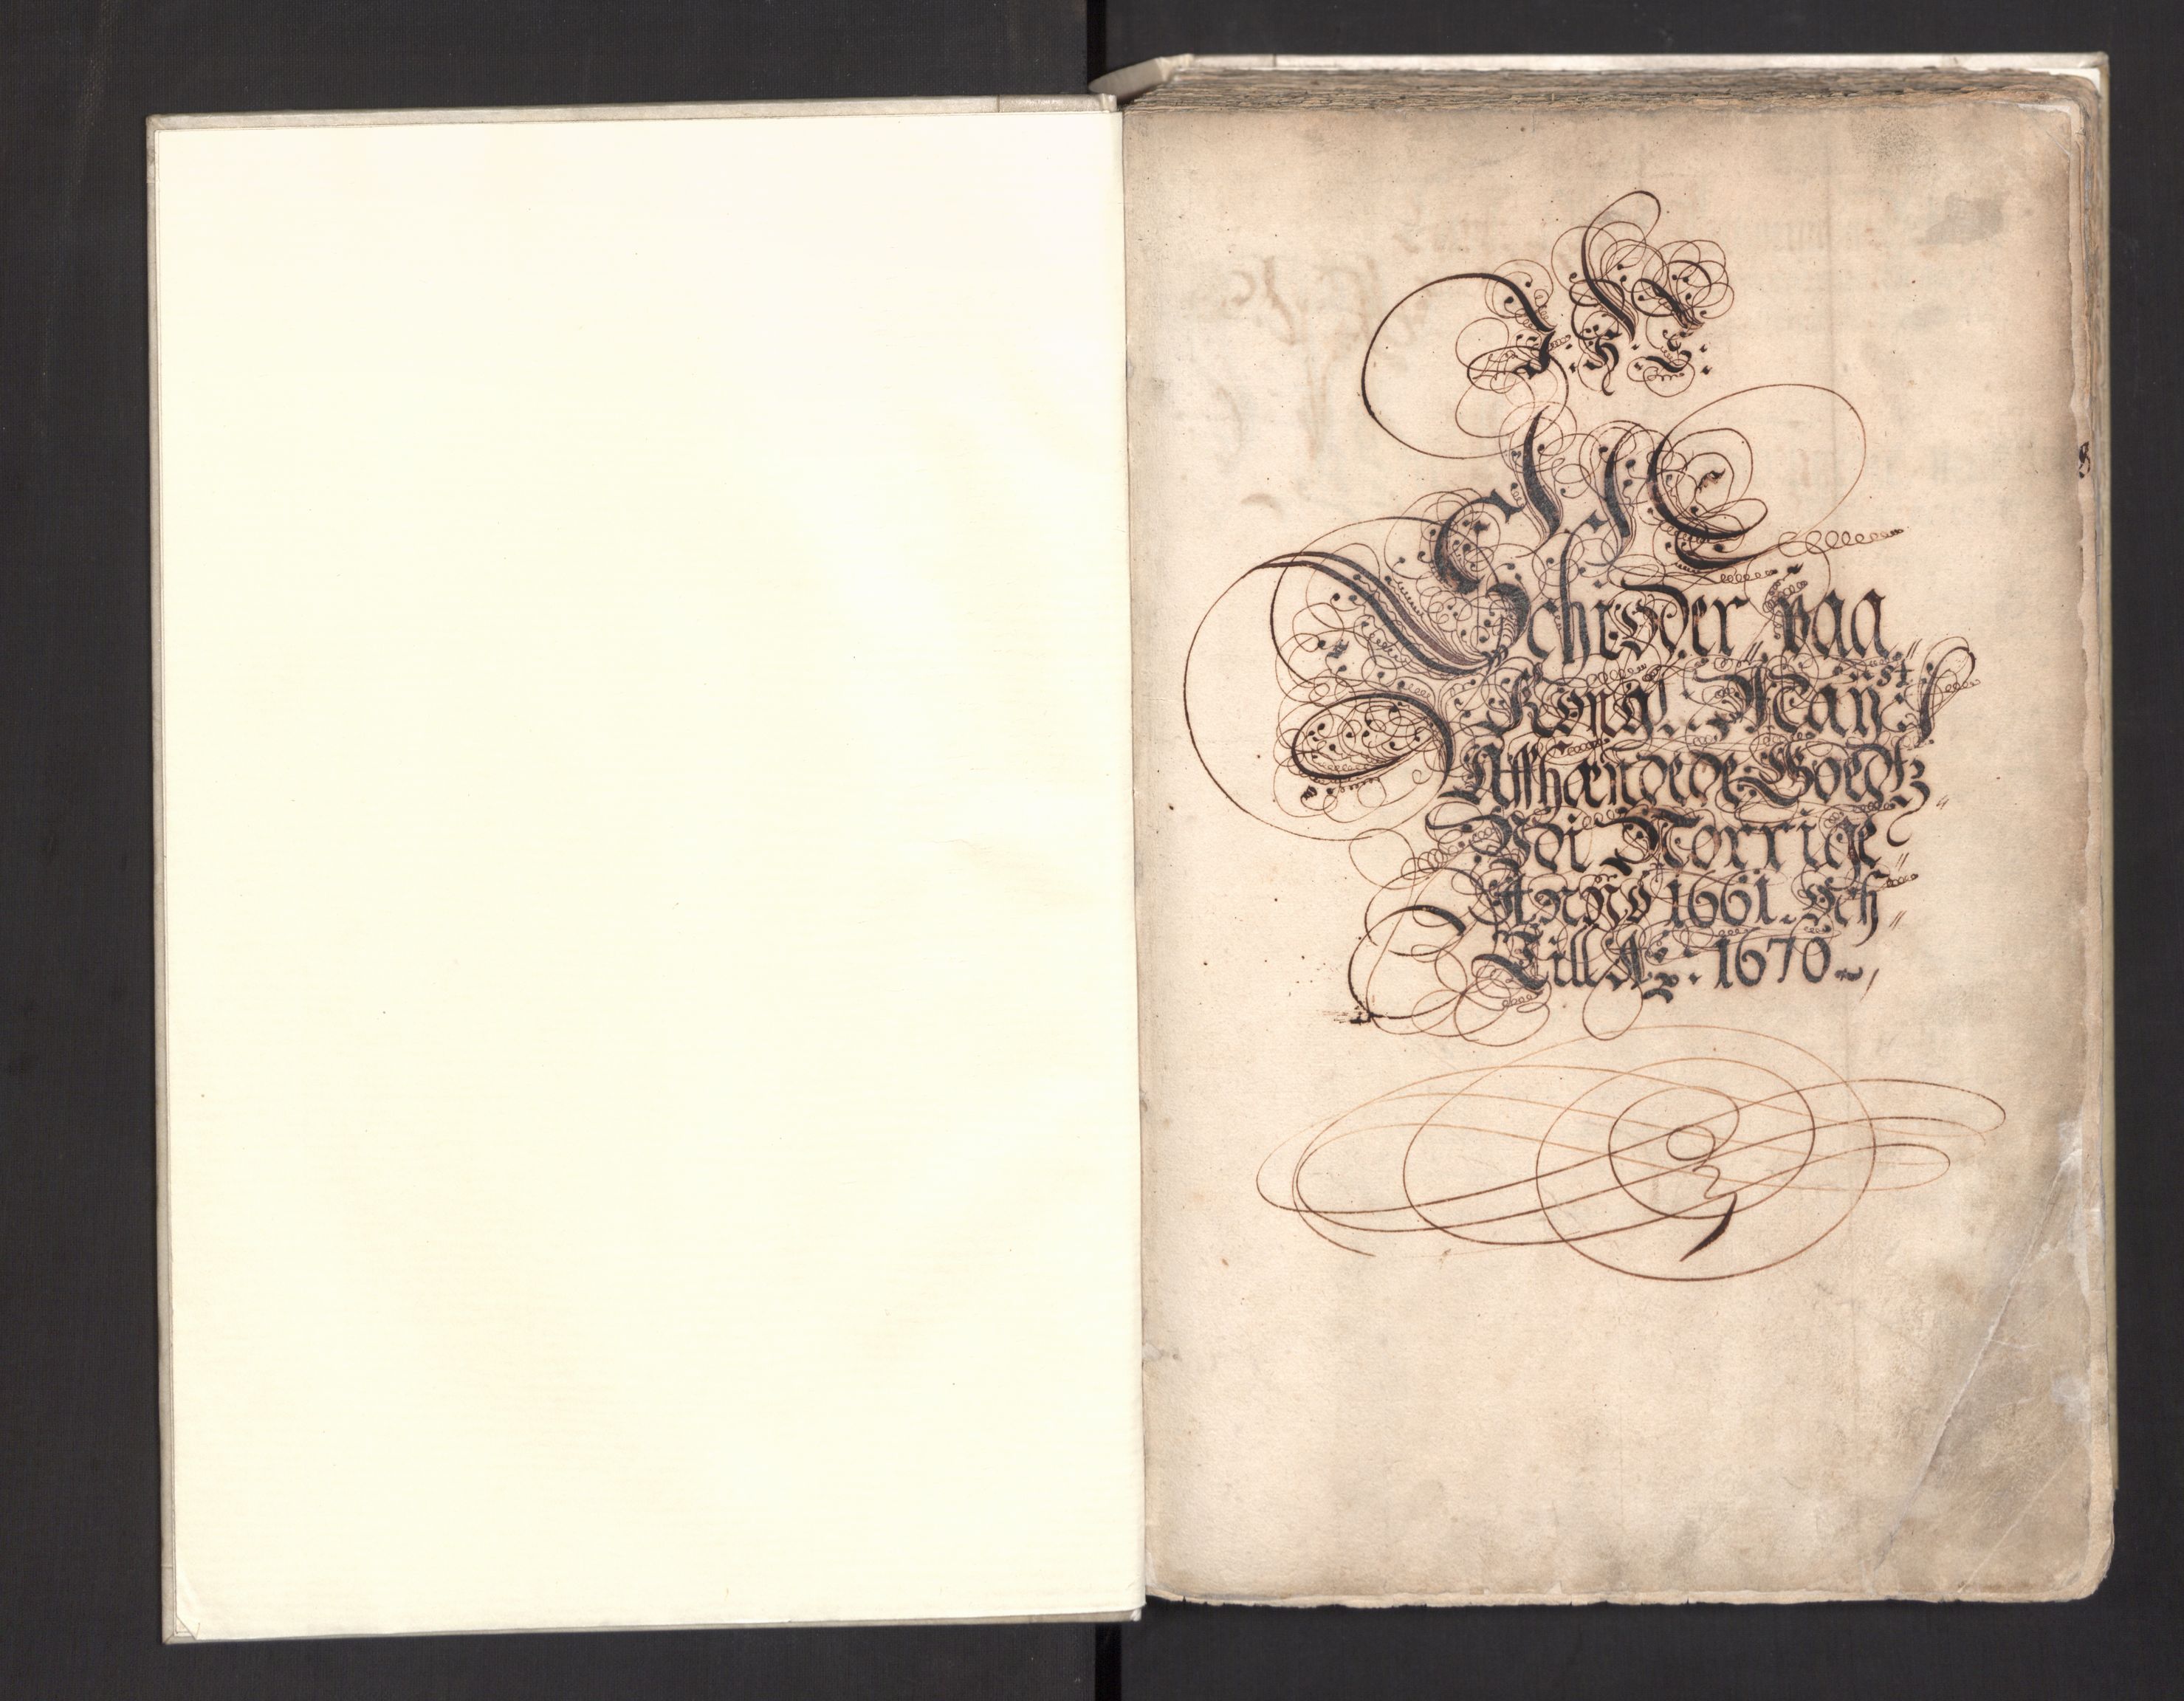 J. H. S.
SCHiøder paa
Kongl. Maÿst
Affhændede Goedtz
Udi Norrige
Anno 1661. Och
Till Ao. 1670